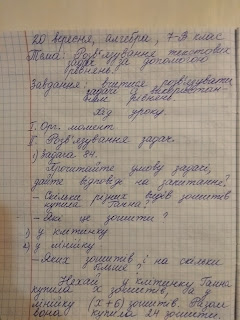 20 вересня, алгебра, 7-В клас
Тема: Розв'язування текстових
задач за допомогою
рівнянь.
Завдання: вчитися розв'язувати
задачі з використан-
ням рівнянь.
Хід уроку
I. Орг. момент
II. Розв'язування задач.
1) Задача 84.
Прочитайте умову задачі,
дайте відповідь на запитання?
- Скільки різних видів зошитів
купила Ганна?
- Які це зошити?
1) у клітинку
2) у лінійку.
- Яких зошитів і на скільки
більше?
Нехай у клітинку Ганна
купила х зошитів, а у
лінійку (х+6) зошитів. Разом
вона купила 24 зошити.